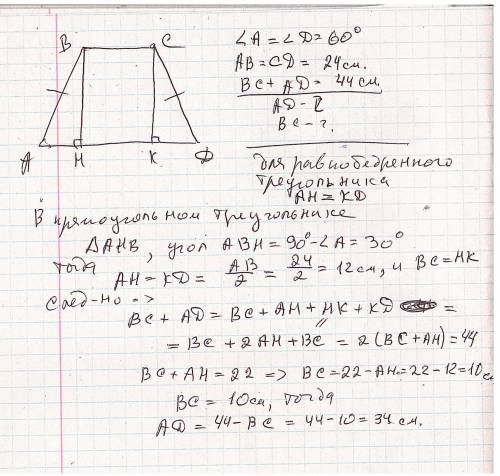 B C
A H K D
∠A = ∠D = 60°
AB = CD = 24 см.
BC + AD = 44 см
AD - ?
BC - ?
для равнобедренного
треугольника
AH = KD
В прямоугольном треугольнике
ΔAHB, угол ABH = 90° - ∠A = 30°
тогда
AH = KD = AB/2 = 24/2 = 12 см, и BC = HK
след-но =>
BC + AD = BC + AH + HK + KD =
= BC + 2AH + BC = 2(BC + AH) = 44
BC + AH = 22 => BC = 22 - AH = 22 - 12 = 10 см
BC = 10 см, тогда
AD = 44 - BC = 44 - 10 = 34 см.